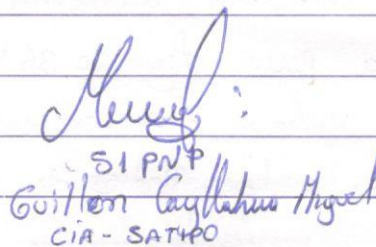 S1 PNP
Guillen Cayllahua Miguel
CIA - SATIPO